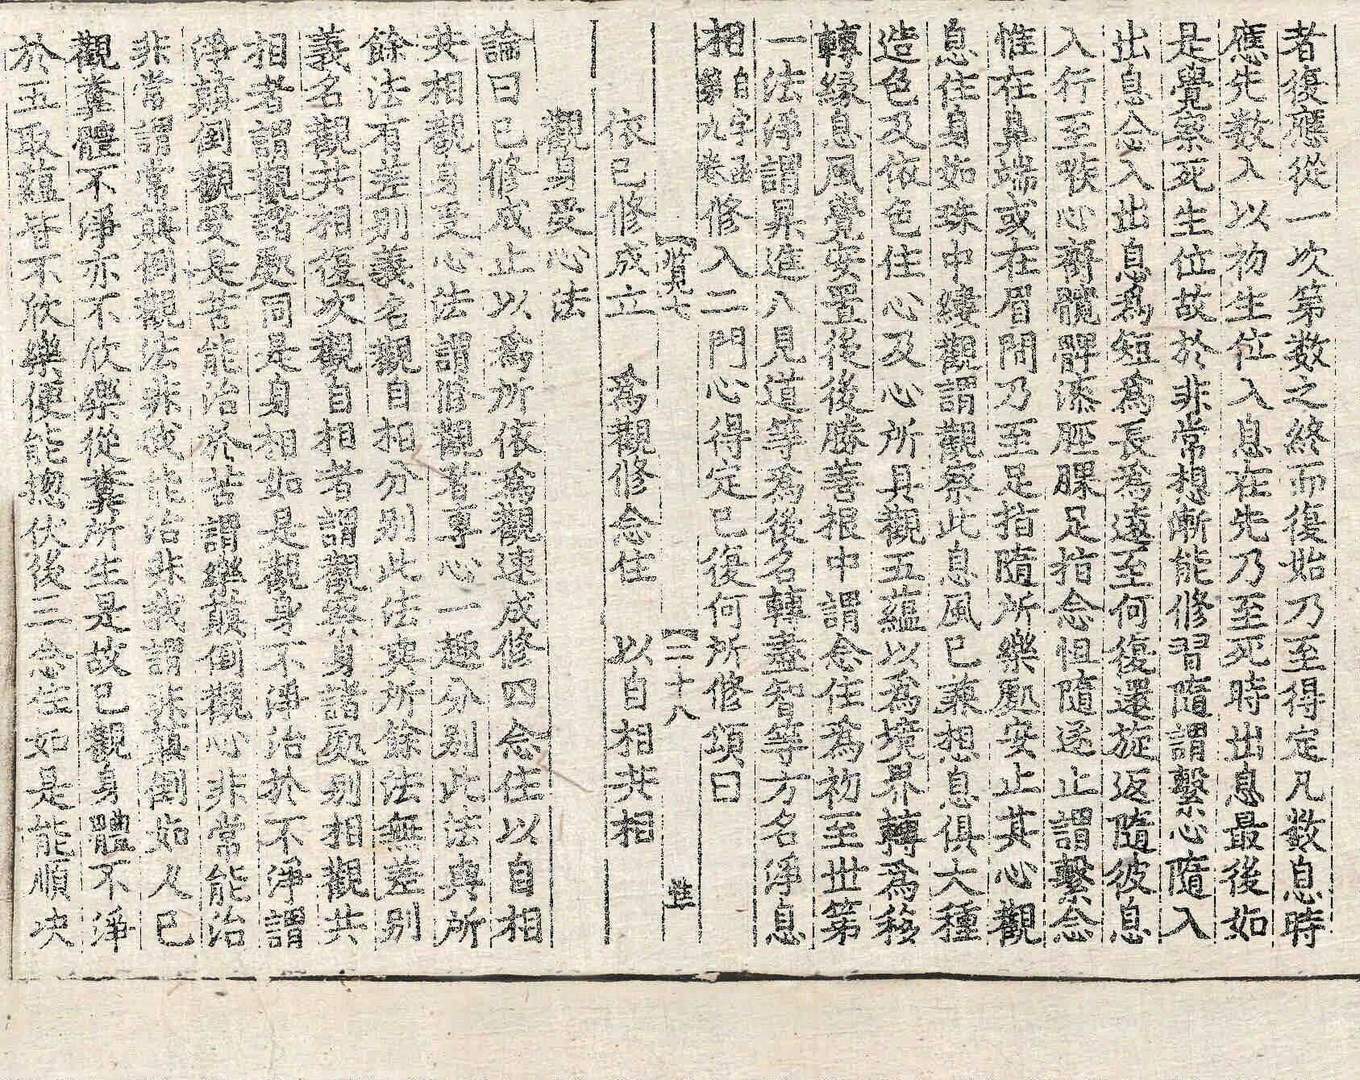 者復應從一次第數之終而復始乃至得定凡數息時
應先數入以初生位入息在先乃至死時出息最後如
是覺察死生位故於非常想漸能修習隨謂繫心隨入
出息念入出息為短為長為遠至何復還旋返隨彼息
入行至喉心齊髖髀𣎴脛腂足指念恒隨逐止謂繫念
惟在鼻端或在眉間乃至足指隨所樂處安止其心觀
息住身如珠中縷觀謂觀察此息風已兼想息俱大種
造色及依色住心及心所具觀五蘊以為境界轉為移
轉緣息風覺安置後後勝善根中謂念住為初至世第
一法淨謂昇進入見道等為後名轉盡智等方名淨息
相自字函第九卷修入二門心得定已復何所修頌曰
【賢七
【二十八
依已修成立 為觀修念住 以自相共相
觀身受心法
論曰已修成止以為所依為觀速成修四念住以自相
共相觀身受心法謂修觀者專心一趣分別此法與所
餘法有差別義名觀自相分別此法與所餘法無差別
義名觀共相復次觀自相者謂觀察身諸處別相觀共
相者謂觀諸處同是身相如是觀身不淨治於不淨謂
淨顛倒觀受是苦能治於苦謂樂顛倒觀心非常能治
非常謂常顛倒觀法非我能治非我謂非顛倒如人已
觀糞體不淨亦不欣樂從糞所生是故已觀身體不淨
於五取蘊皆不欣樂便能揔伏後三念住如是能順決